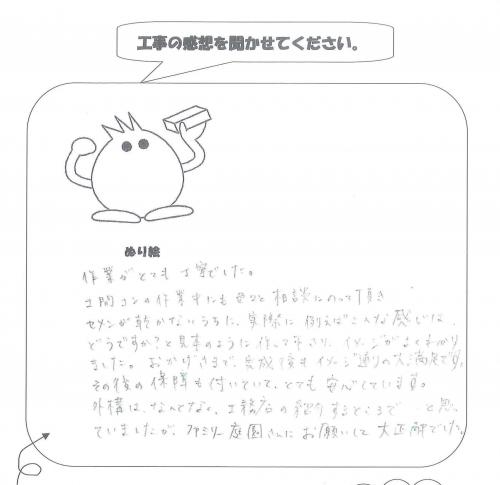 工事の感想を聞かせてください。
ぬり絵
作業がとても丁寧でした。
土間コンの作業中にも色々と相談にのって頂き
セメンが乾かないうちに、実際に例えばこんな感じは、
どうですか?と見本のように作って下さり、イメージがよくわかり
ました。おかげさまで、完成後もイメージ通りの大満足です。
その後の保障も付いていて、とても安心しています。
外構は、なんとなく、工務店の するところで と思っ
ていましたが、ファミリー庭園さんにお願いして大正解でした。